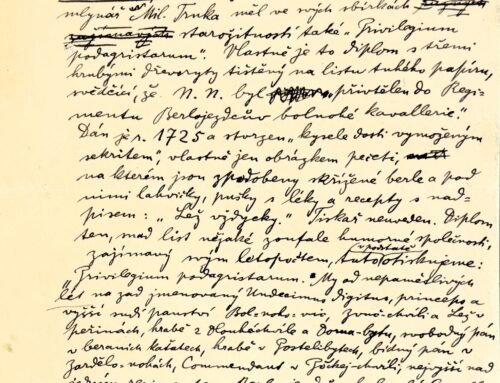 mlynář Mil. Trnka měl ve svých sbírkách
starožitností také "Privilegium
podagristarum". Vlastně je to diplom s třemi
hrubými dřevoryty tištěný na listu tuhého papíru,
svědčící, že N. N. byl "přivtělen do Regi-
mentu Berlojezdcův bolnohé kavallerie."
Dán je r. 1725 a stvrzen "kysele dosti vymoženým
sekritem", vlastně jen obrázkem pečeti,
na kterém jsou zpodobeny skřížené berle a pod
nimi lahvičky, pušky s léky a recepty s nad-
pisem: "Lež vždycky." Tiskař neuveden. Diplom
ten, nad list nějaké zoufale humorné společnosti
zajímavý svým letopočtem, tuto v podstatě otiskujeme:
"Privilegium podagristarum. My od nepamětlivých
let na zad jmenovaný Undecimus digitus, princeps a
vyšší nudí panství Bol-noh-vic, Zvůč-chvíli a Lež v
peřinách, hrabě z Dlouhéchvíle a Doma-bytu, svobodný pán
v beraních kažatech, hrabě v Postelibytech, bídný pán v
Zardělo-nohách, Commendant v Póčkej-chvíli, nejvyšší nad